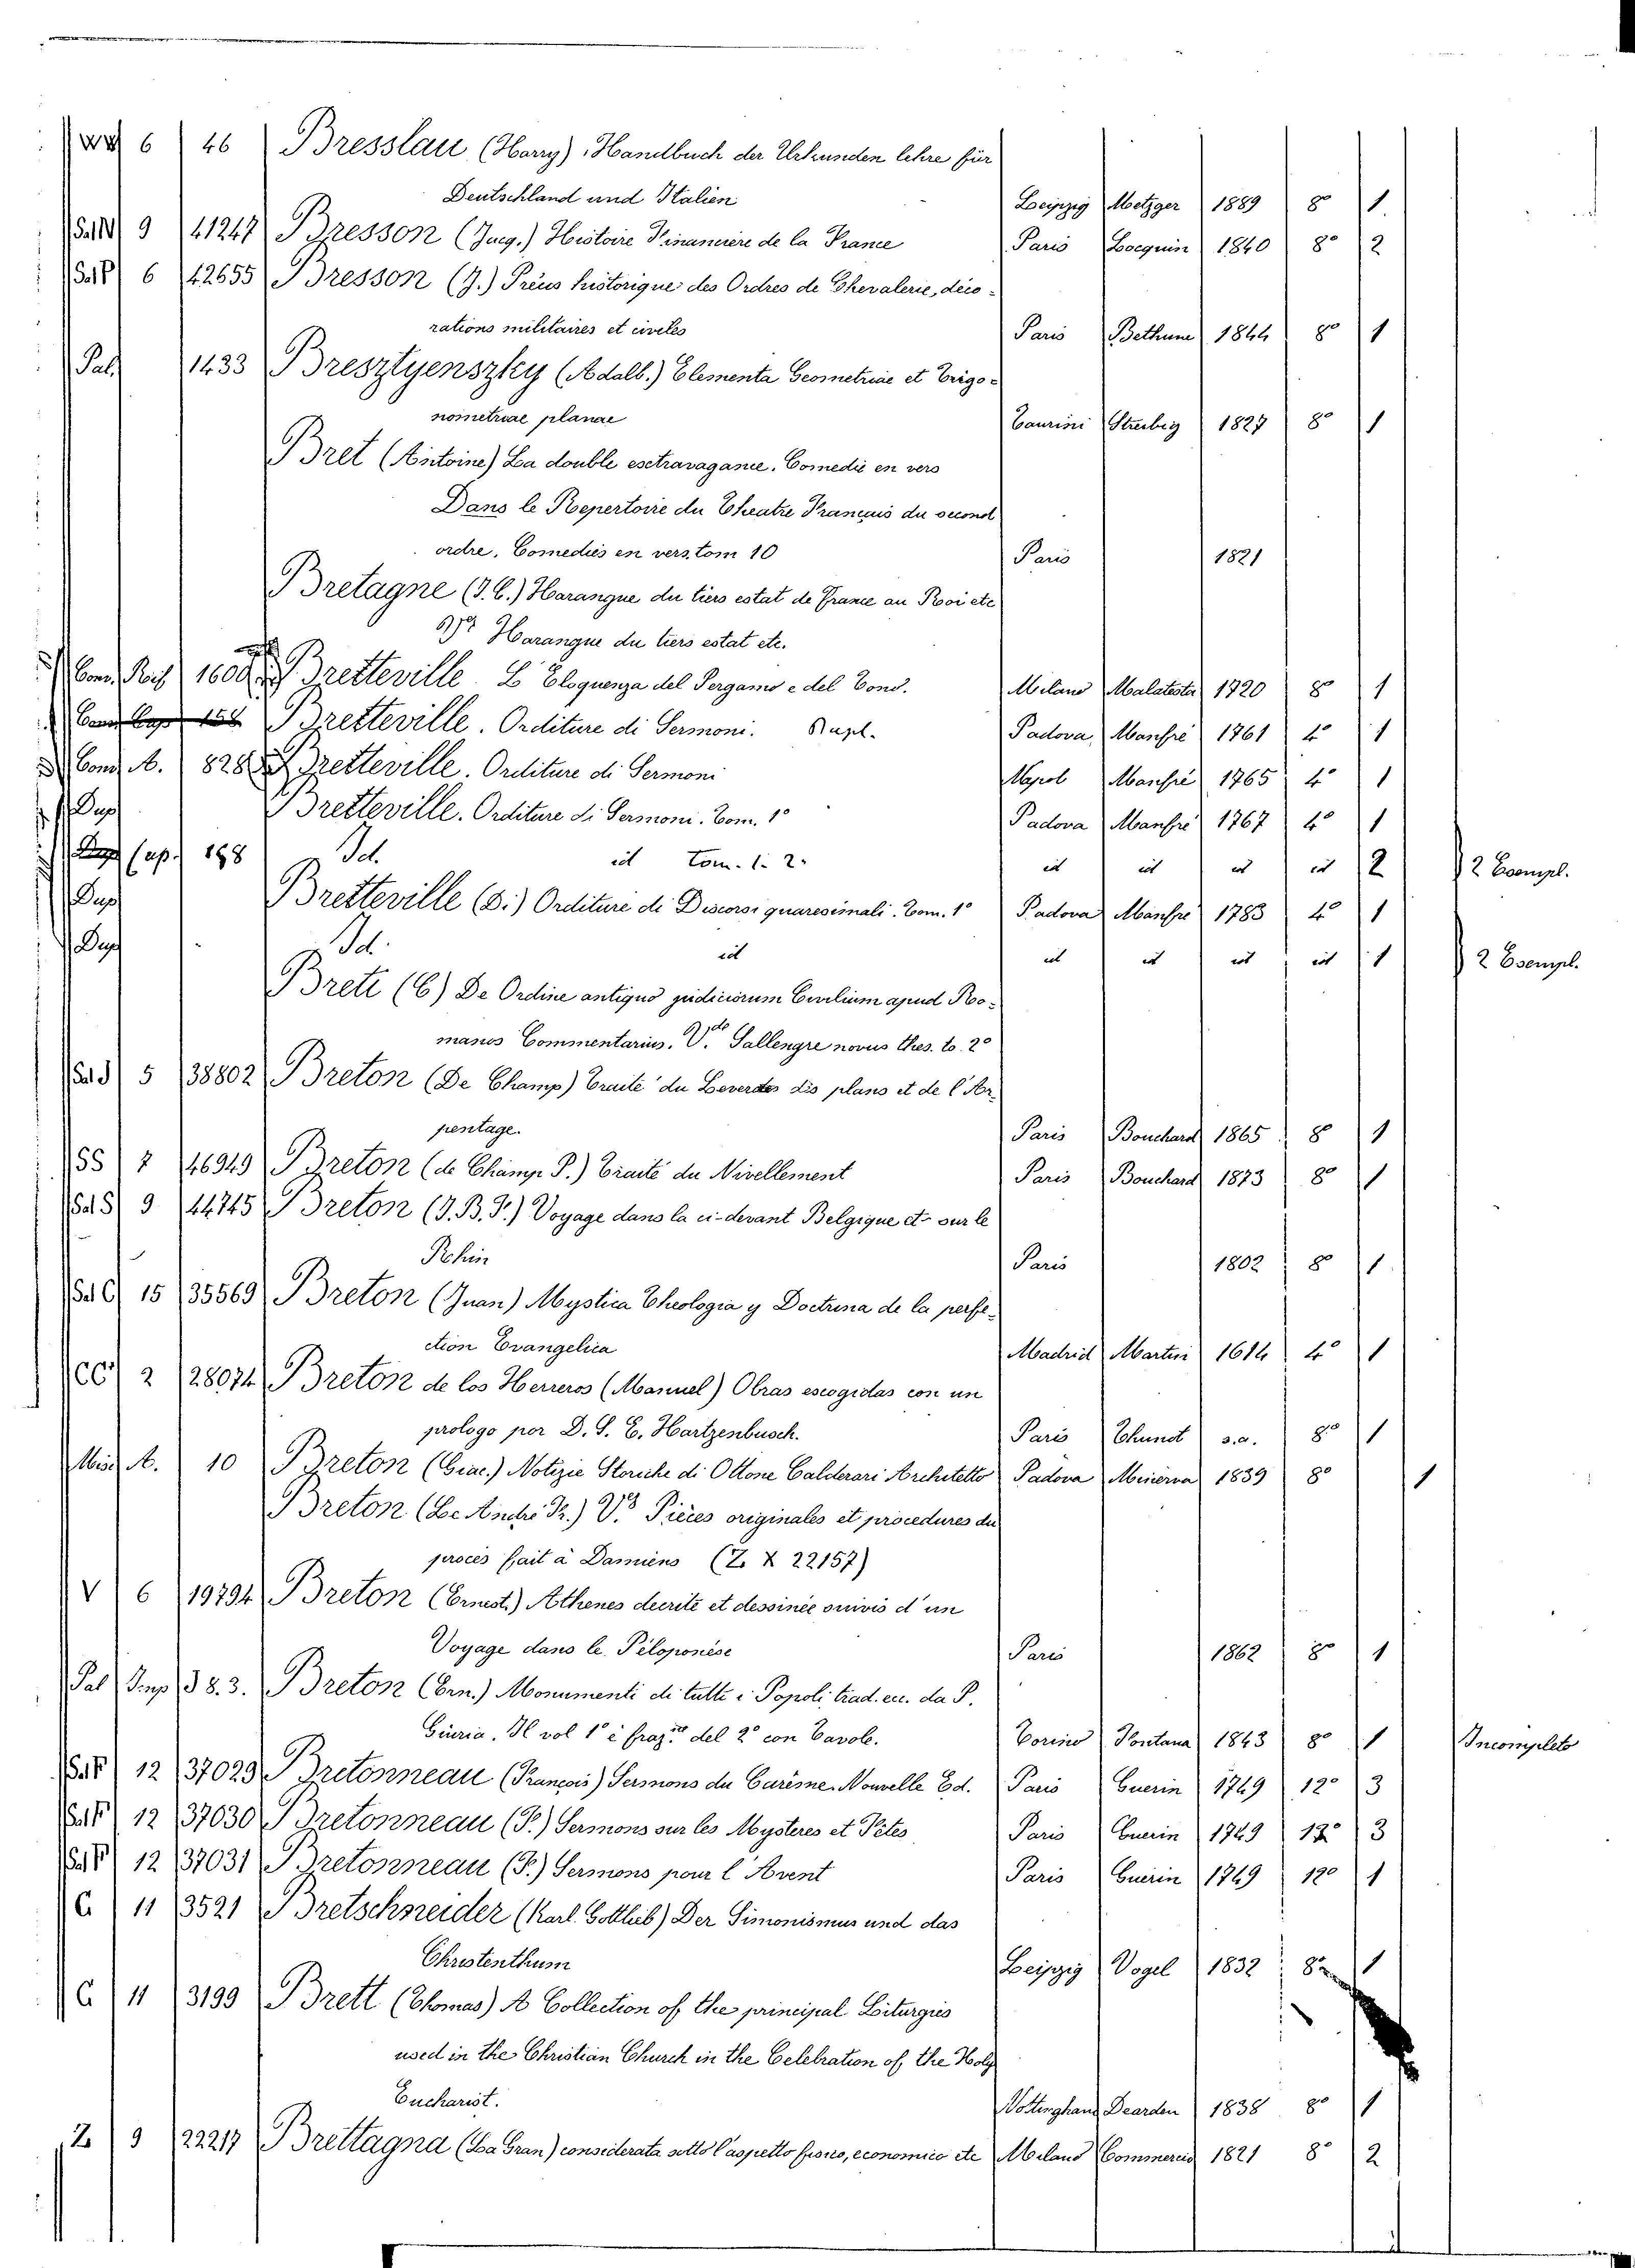 6 46 Bresslau (Harry) Handbuch der Urkunden lehre für
Deutschland und Italien Leipzig Metzger 1889 8° 1
9 41247 Bresson (Jacq.) Histoire Financière de la France Paris Locquin 1840 8° 2
6 42655 Bresson (J.) Préus historique des Ordres de Chevalerie, déco-
rations militaires et civiles Paris Bethune 1844 8° 1
Pal. 1433 Bresztyenszky (Adalb.) Elementa Geometriae et Trigo-
nometriae planae Taurini Streibig 1827 8° 1
Bret (Antoine) La double esctravagance. Comedie en vers
Dans le Repertoire du Theatre Français du second
ordre. Comedies en vers. tom 10 Paris 1821
Bretagne (J. C.) Harangue du tiers estat de France au Roi etc
Harangue du tiers estat etc.
Conv. Rif 1600 Bretteville L'Eloquenza del Pergamo e del Conv. Milano Malatesta 1720 8° 1
Bretteville. Orditure di Sermoni. Dupl. Padova Manfrè 1761 4° 1
Conv. A. 828 Bretteville. Orditure di Sermoni Napol Manfrè 1765 4° 1
Dup Bretteville. Orditure di Sermoni. Tom. 1° Padova Manfrè 1767 4° 1
Cap. 198 Id. id Tom. 1. 2. id id id id 2 2 Esempl.
Dup Bretteville (Di) Orditure di Discorsi quaresimali. Tom. 1° Padova Manfrè 1783 4° 1
Dup Id. id id id id id 1 2 Esempl.
Breti (C) De Ordine antiquo judiciorum Civilium apud Ro-
manos Commentarius. V.do Sallengre novus thes. to. 2°
5 38802 Breton (De Champ) Traité du Leverdes des plans et de l'Ar-
pentage. Paris Bouchard 1865 8 1
SS 7 46949 Breton (de Champ P.) Traité du Nivellement Paris Bouchard 1873 8° 1
Sal S 9 44745 Breton (J. B. J.) Voyage dans la ci-devant Belgique et sur le
Rhin Paris 1802 8° 1
Sal C 15 35569 Breton (Juan) Mystica Theologia y Doctrina de la perfe-
ction Evangelica Madrid Martin 1614 4° 1
CC 2 28074 Breton de los Herreros (Manuel) Obras escogidas con un
prologo por D. S. E. Hartzenbusch. Paris Thunot s.a. 8° 1
Misc A. 10 Breton (Giac.) Notizie Storiche di Ottone Calderari Architetto Padova Minerva 1839 8° 1
Breton (Le André Fr.) V. Pièces originales et procedures du
procès fait à Damiens (Z X 22157)
V 6 19794 Breton (Ernest.) Athenes decrite et dessinée suivis d'un
Voyage dans le Péloponèse Paris 1862 8° 1
Pal Imp 38.3. Breton (Ern.) Monumenti di tutti i Popoli, trad. ecc. da P.
Giuria. Il vol 1° è fraz. del 2° con Tavole. Torino Fontana 1843 8° 1 Incompleto
Sal F 12 37029 Bretonneau (François) Sermons du Carème. Nouvelle Ed. Paris Guerin 1749 12° 3
Sal F 12 37030 Bretonneau (F.) Sermons sur les Mysteres et Fêtes Paris Guerin 1749 12° 3
Sal F 12 37031 Bretonneau (F.) Sermons pour l'Avent Paris Guerin 1749 12° 1
G 11 3521 Bretschneider (Karl. Gottlieb) Der Simonismus und das
Christenthum Leipzig Vogel 1832 8° 1
G 11 3199 Brett (Thomas) A Collection of the principal Liturgies
used in the Christian Church in the Celebration of the Holy
Eucharist. Nottingham Dearden 1838 8° 1
Z 9 22217 Brettagna (La Gran) considerata sotto l'aspetto fisico, economico etc Milano Commercio 1821 8° 2